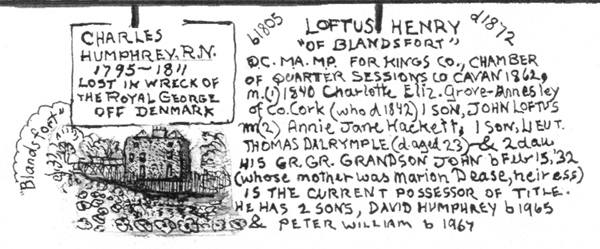 CHARLES
HUMPHREY, R.N.
1795~1811
LOST IN WRECK OF
THE ROYAL GEORGE
OFF DENMARK
"Blandsfort"
b1805
LOFTUS HENRY
d1872
"OF BLANDSFORT"
Q.C. MA. MP. FOR KINGS CO., CHAMBER
OF QUARTER SESSIONS CO CAVAN 1862,
m.(1) 1840 Charlotte Eliz. Grove-Annesley
of Co. Cork (who d 1842) 1 SON, JOHN LOFTUS
m(2) Annie Jane Hackett, 1 SON, LIEUT.
THOMAS DALRYMPLE (d aged 23) & 2 dau
HIS GR. GR. GRANDSON JOHN b Feb 15, '32
(whose mother was Marion Dease, heiress)
IS THE CURRENT POSSESSOR OF TITLE.
HE HAS 2 SONS, DAVID HUMPHREY b 1965
& PETER WILLIAM b 1967